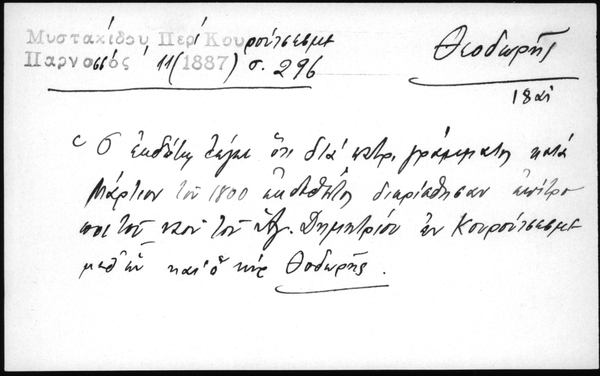 Μυστακίδου Περί Κουρούτσεσμε
Παρνασσός 11 (1887) σ. 296
Θεοδωρῆς
18αἰ
Ὁ ἐκδότης λέγει ὅτι διὰ πατρ. γράμματος κατὰ
Μάρτιον τοῦ 1800 ἐκδοθέντος διωρίσθησαν ἐπίτρο
ποι τοῦ ναοῦ τοῦ Ἁγ. Δημητρίου ἐν Κουρούτσεσμε
μεθ' ὧν καὶ ὁ κὺρ Θοδωρῆς.